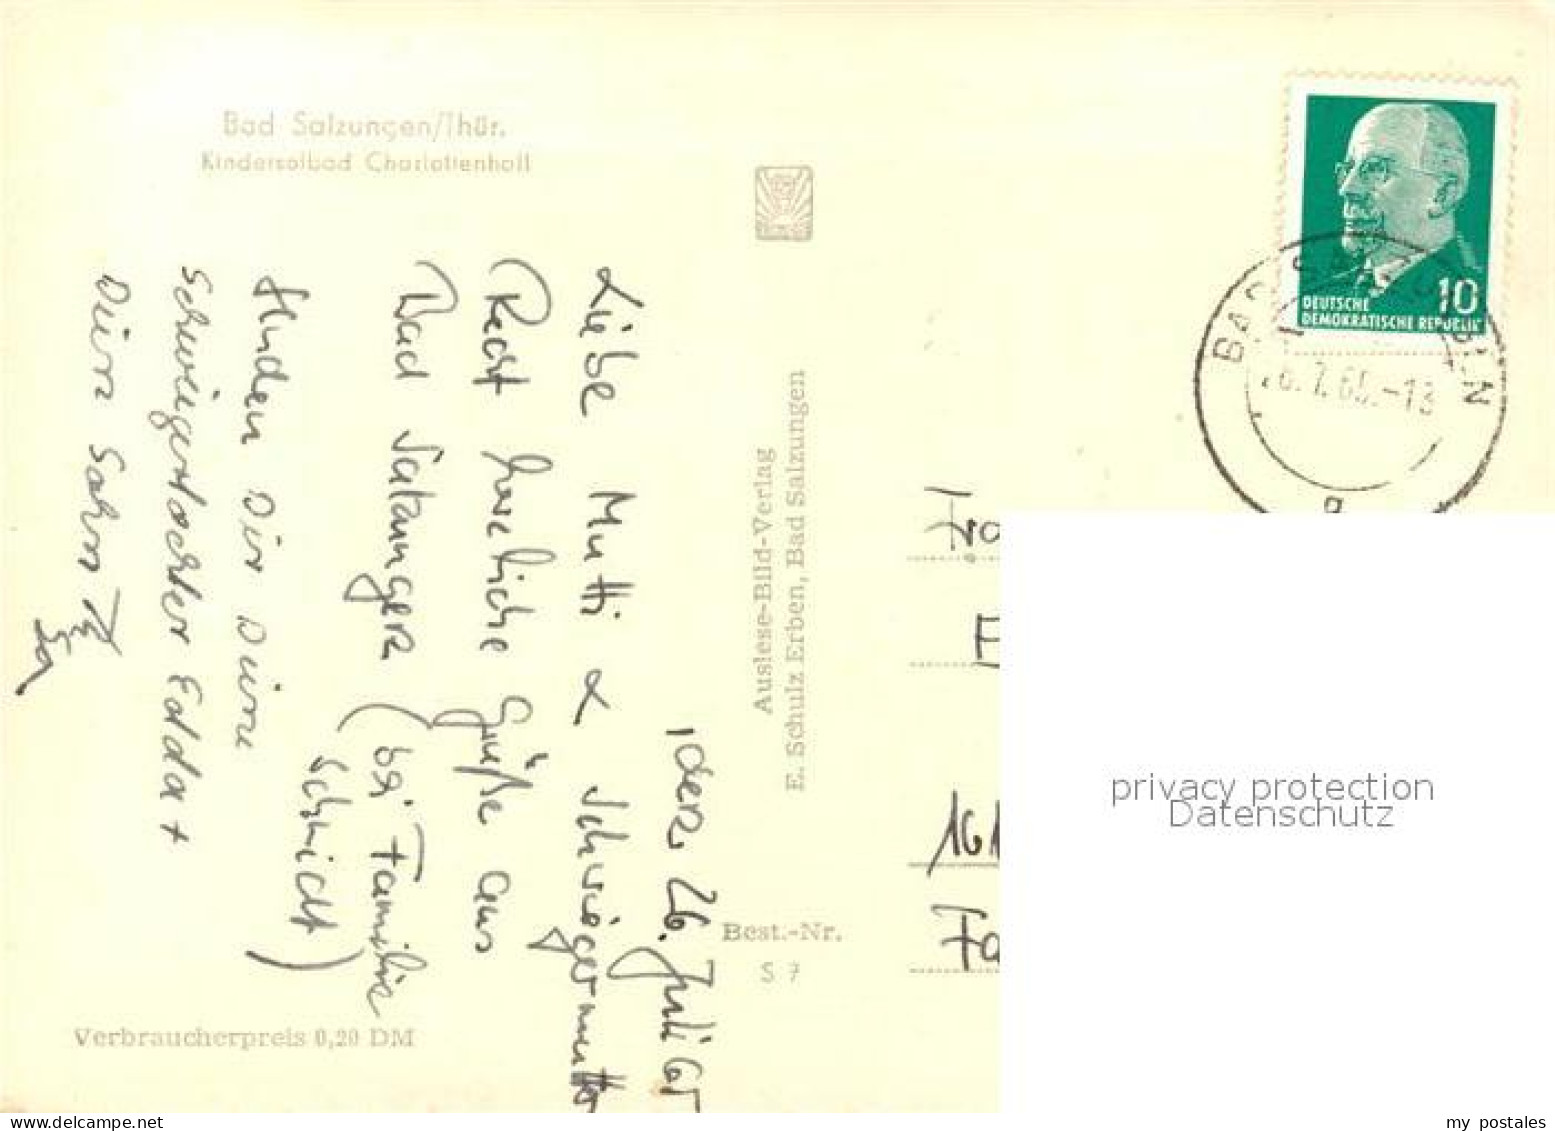 Bad Salzungen/Thür.
Kindersolbad Charlottenhall
, den 26. Juli 65
Liebe Mutti & Schwiegermutti
Recht herzliche Grüße aus
Bad Salzungen (bei Familie
Schmidt)
senden Dir Deine
Schwiegertochter Edda +
Dein Sohn
Verbraucherpreis 0,20 DM
Auslese-Bild-Verlag
E. Schulz Erben, Bad Salzungen
Best.-Nr.
S 7
10
DEUTSCHE
DEMOKRATISCHE REPUBLIK
BAD SALZUNGEN
26.7.65.-13
a
161
privacy protection
Datenschutz
my postales